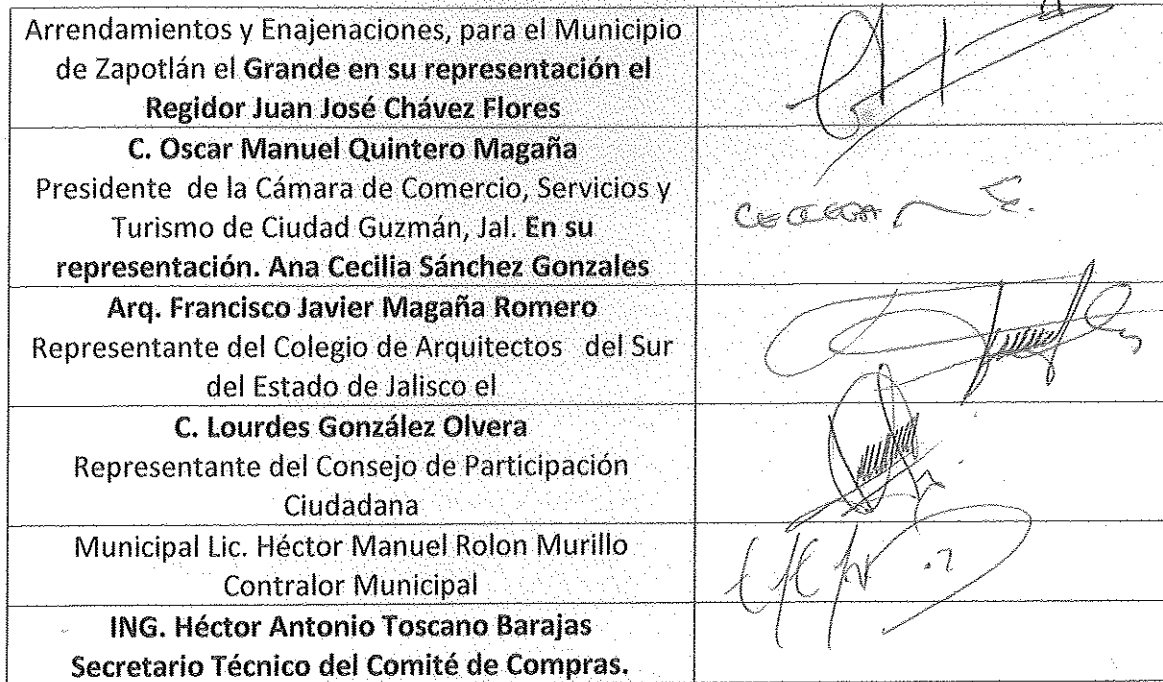 Arrendamientos y Enajenaciones, para el Municipio
de Zapotlán el Grande en su representación el
Regidor Juan José Chávez Flores
C. Oscar Manuel Quintero Magaña
Presidente de la Cámara de Comercio, Servicios y
Turismo de Ciudad Guzmán, Jal. En su
representación. Ana Cecilia Sánchez Gonzales
Arq. Francisco Javier Magaña Romero
Representante del Colegio de Arquitectos del Sur
del Estado de Jalisco el
C. Lourdes González Olvera
Representante del Consejo de Participación
Ciudadana
Municipal Lic. Héctor Manuel Rolon Murillo
Contralor Municipal
ING. Héctor Antonio Toscano Barajas
Secretario Técnico del Comité de Compras.